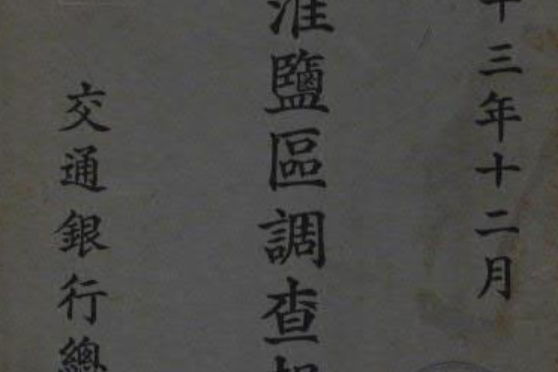 十三年十二月
淮鹽區調查報
交通銀行總